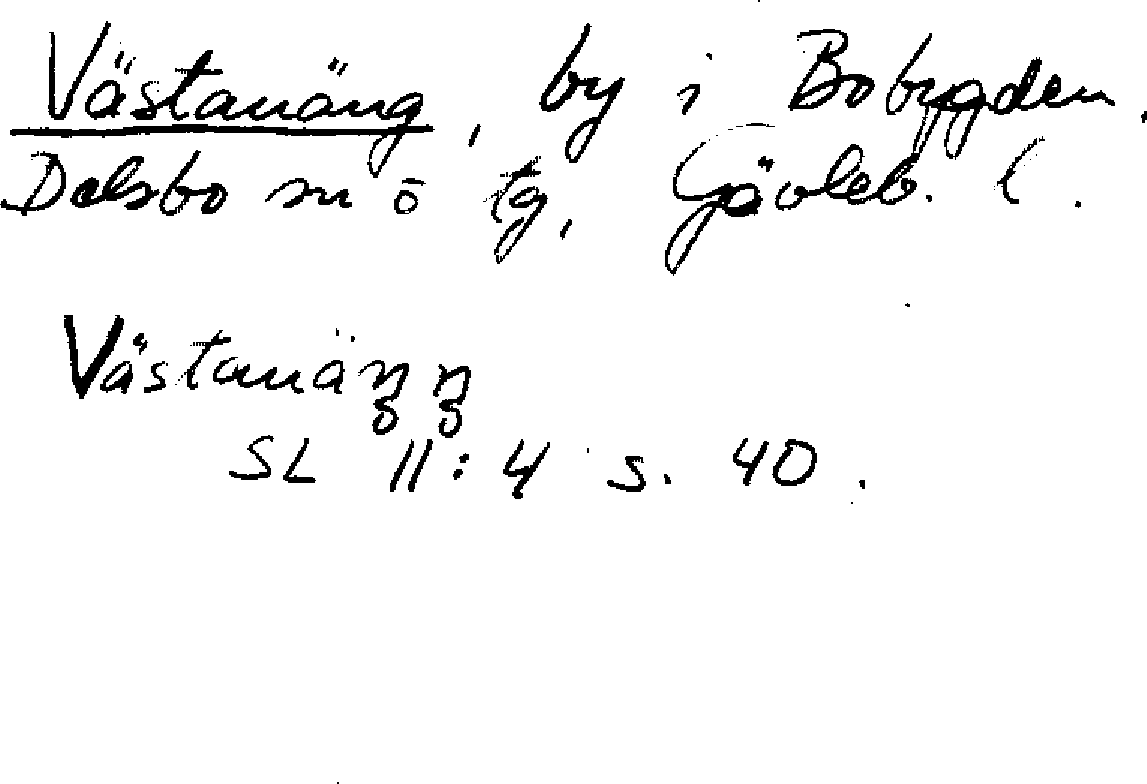 Västanäng, by i Bobygden,
Delsbo sn o tg, Gävleb. l.
Västanäŋ̥ŋ̥
SL 11:4 s. 40.